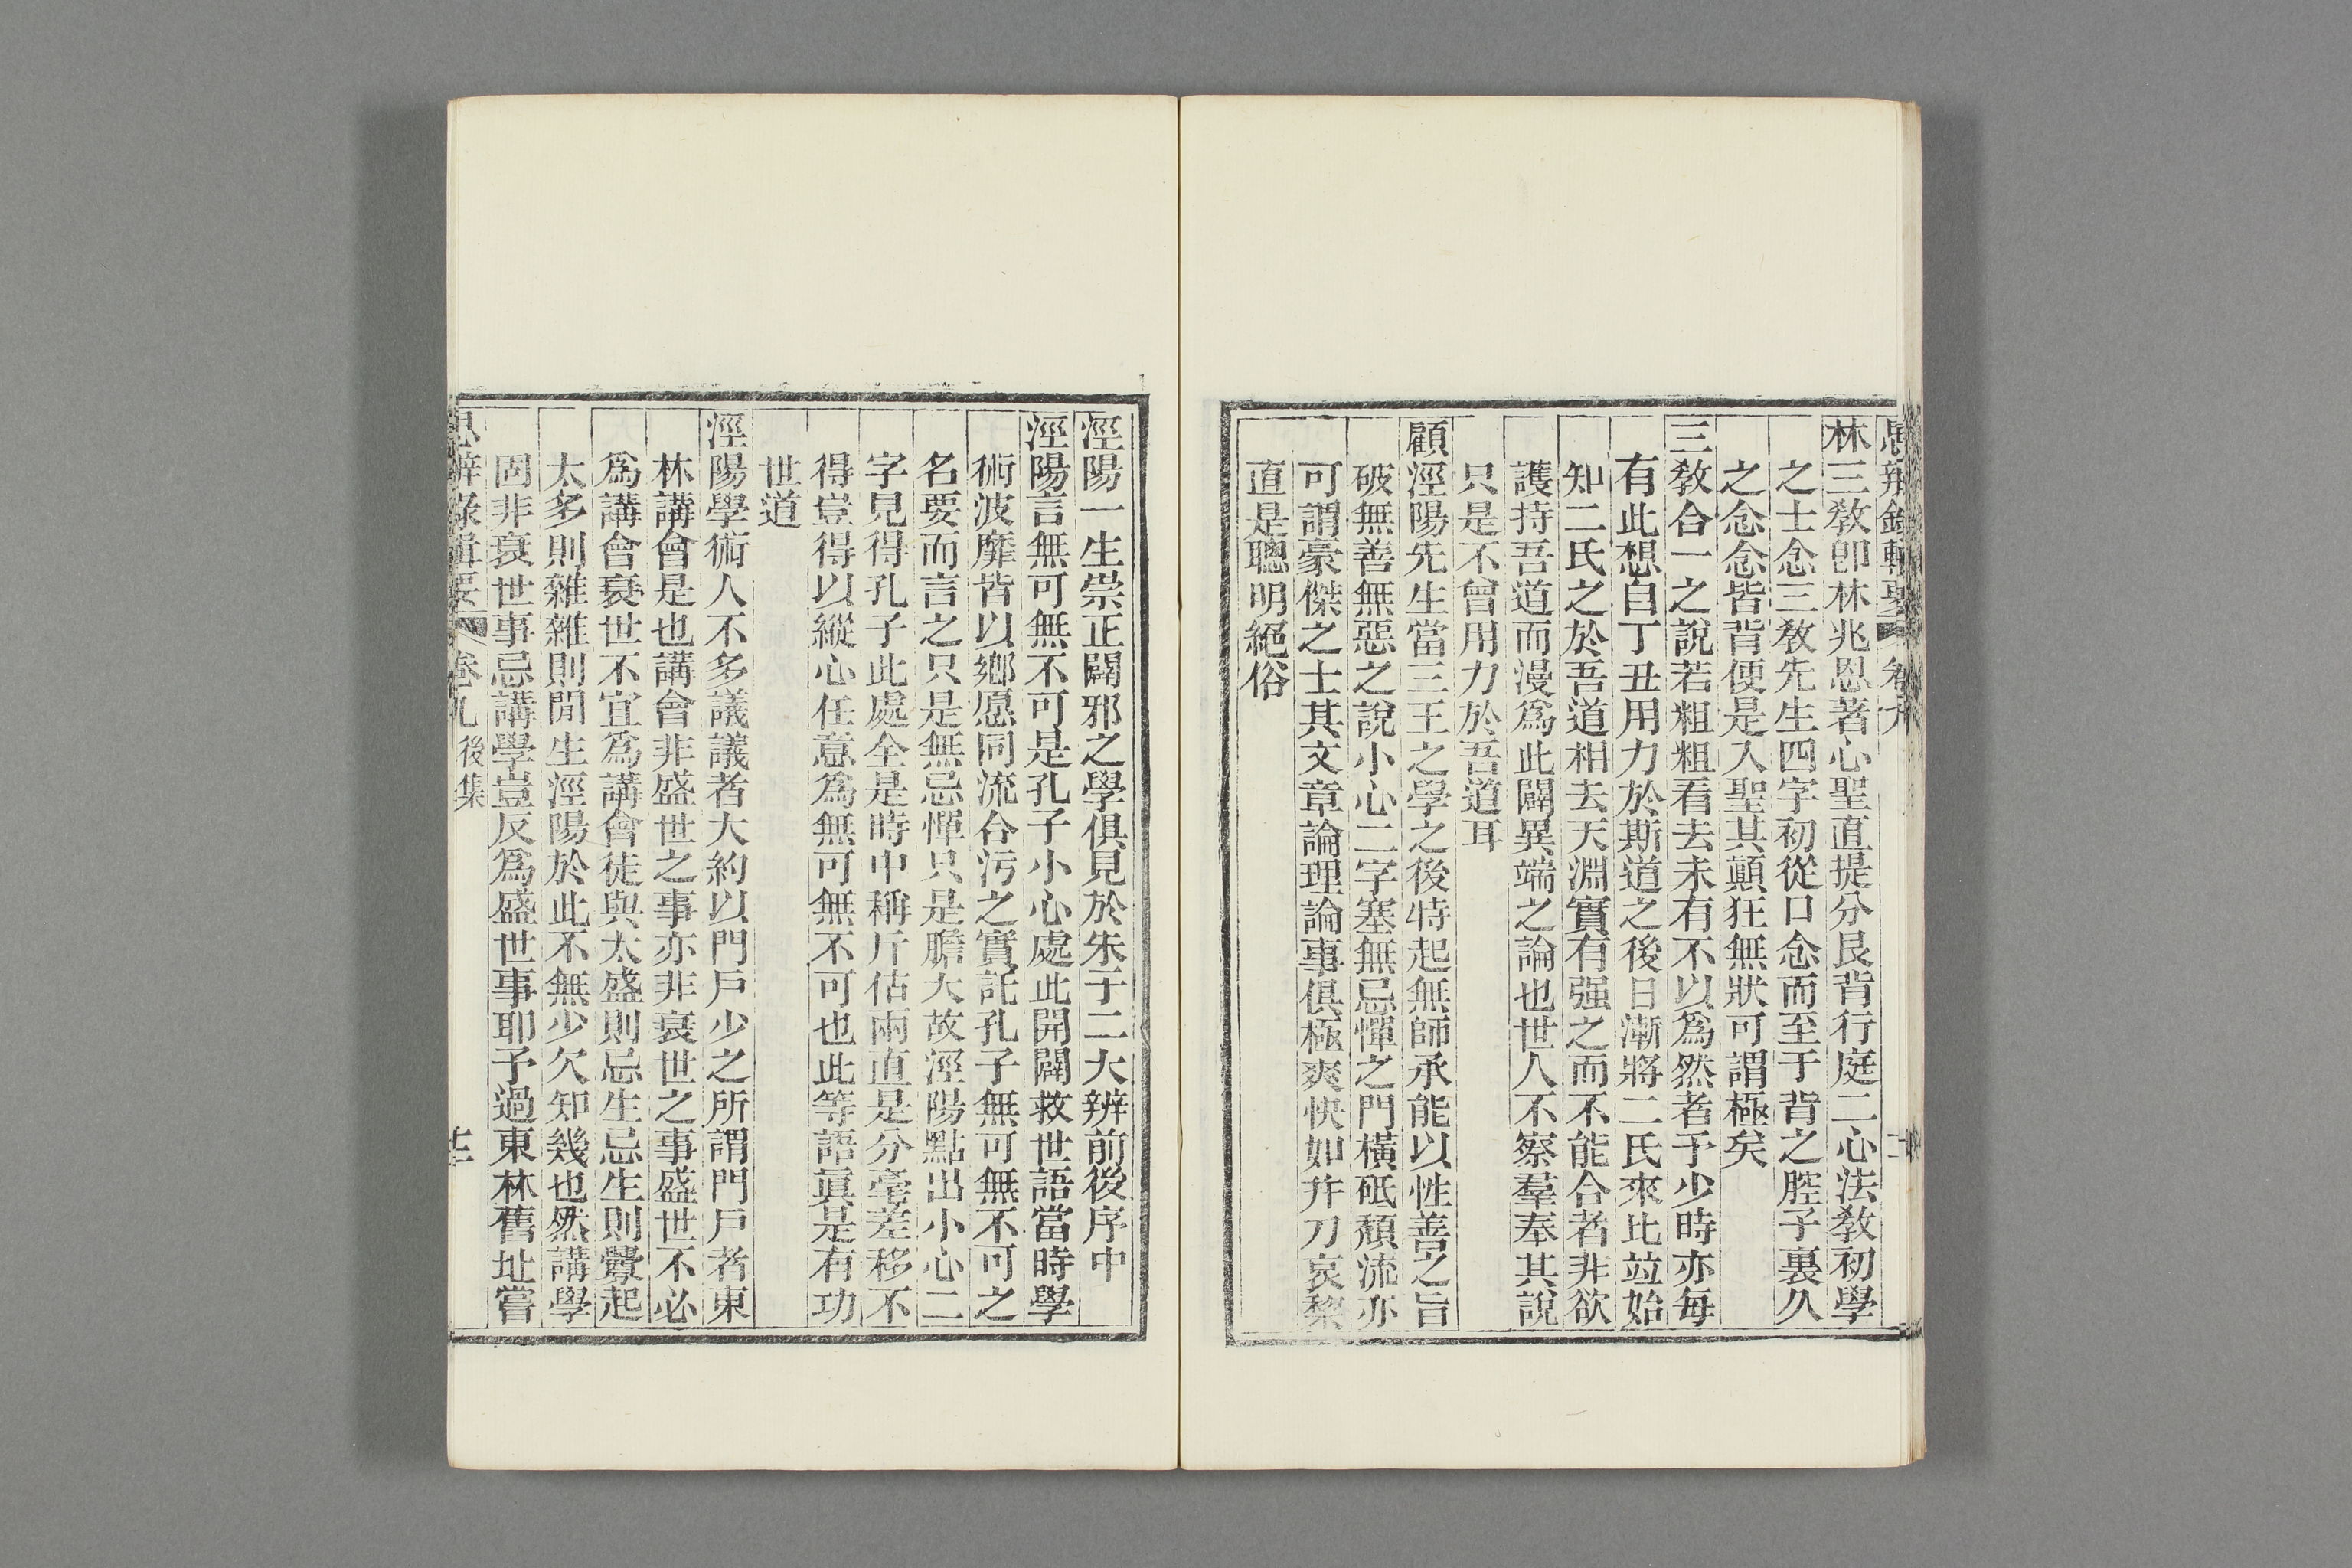 思辨錄輯要 卷九
林三敎卽林兆恩著心聖直提分艮背行庭二心法敎初學
之士念三敎先生四字初從口念而至于背之腔子裏久
之念念皆背便是入聖其顛狂無狀可謂極矣
三敎合一之說若粗粗看去未有不以爲然者予少時亦每
有此想自丁丑用力於斯道之後日漸將二氏來比竝始
知二氏之於吾道相去天淵實有强之而不能合者非欲
護持吾道而漫爲此闢異端之論也世人不察羣奉其說
只是不曾用力於吾道耳
顧涇陽先生當三王之學之後特起無師承能以性善之旨
破無善無惡之說小心二字塞無忌憚之門橫砥頹流亦
可謂豪傑之士其文章論理論事俱極爽快如幷刀哀棃
直是聰明絕俗
涇陽一生崇正闢邪之學俱見於朱子二大辨前後序中
涇陽言無可無不可是孔子小心處此開闢救世語當時學
術波靡皆以鄕愿同流合污之實託孔子無可無不可之
名要而言之只是無忌憚只是膽大故涇陽點出小心二
字見得孔子此處全是時中稱斤估兩直是分毫差移不
得豈得以縱心任意爲無可無不可也此等語眞是有功
世道
涇陽學術人不多議議者大約以門戶少之所謂門戶者東
林講會是也講會非盛世之事亦非衰世之事盛世不必
爲講會衰世不宜爲講會徒與太盛則忌生忌生則釁起
太多則雜雜則閒生涇陽於此不無少欠知幾也然講學
固非衰世事忌講學豈反爲盛世事耶予過東林舊址嘗
思辨錄輯要 卷九 後集 十二